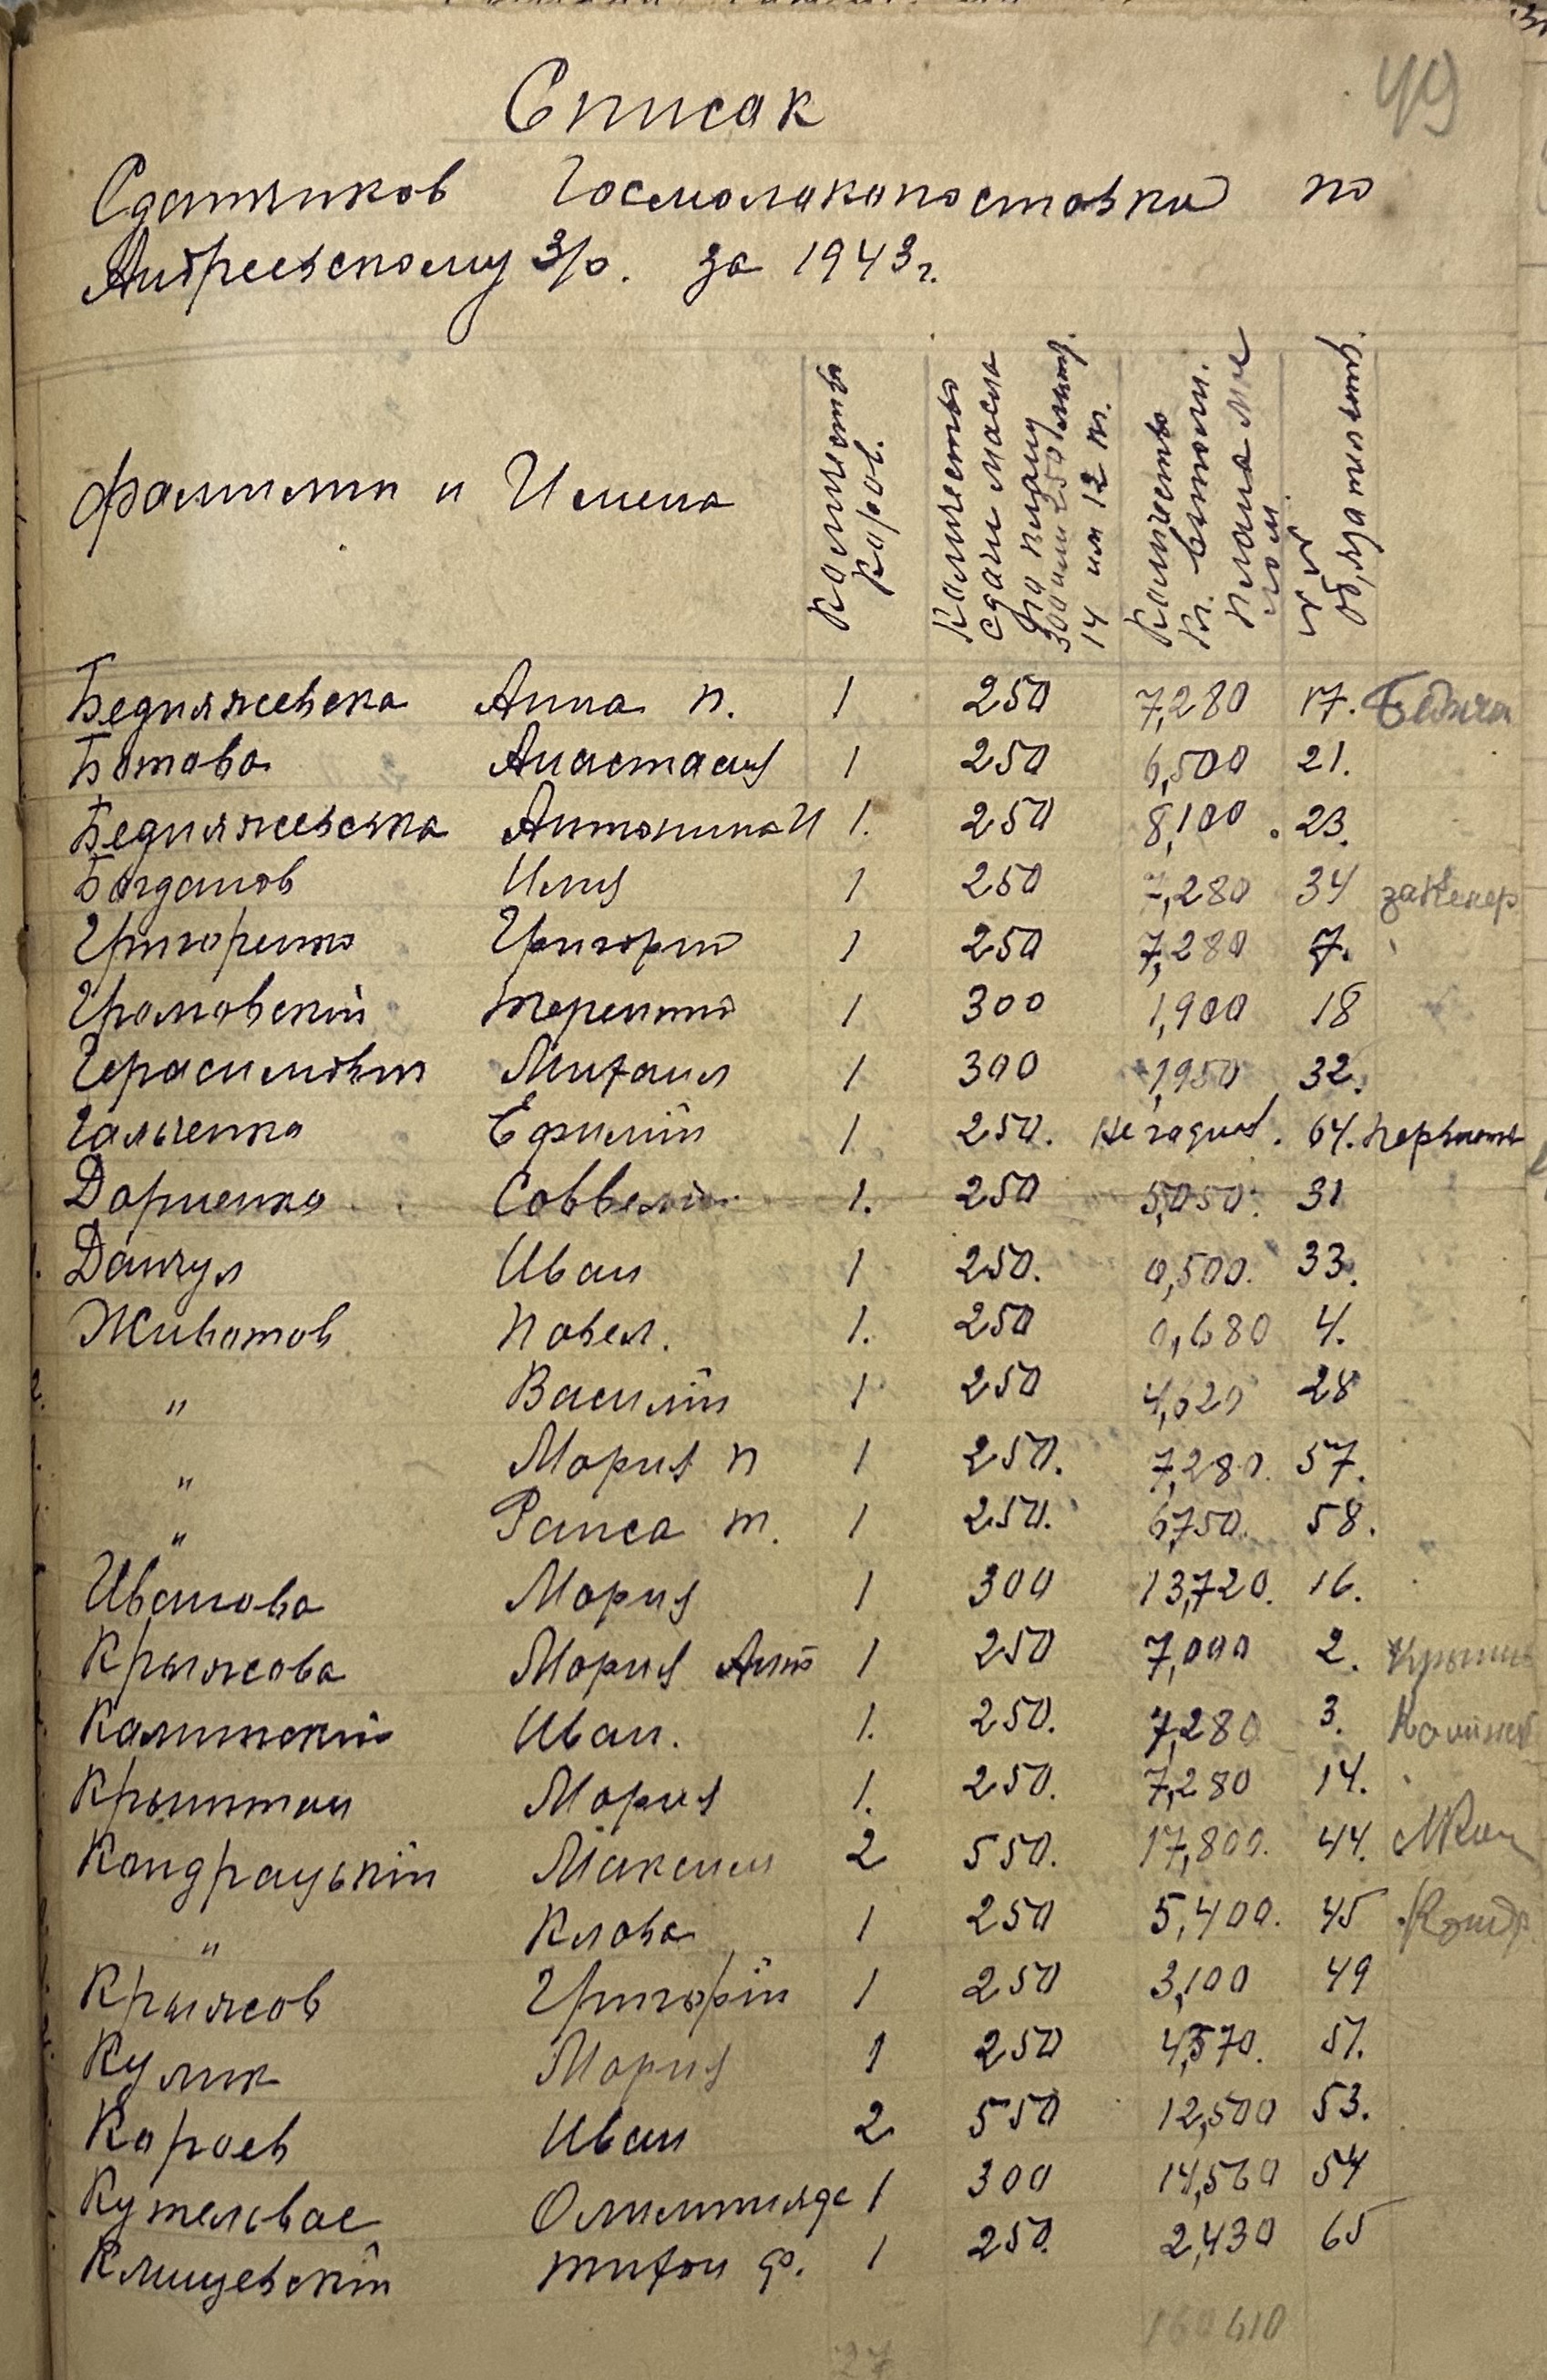 49
Списак
Сдатчиков Госмолокопоставки по
Андреевскому З/О. за 1943 г.
Фамилии и Имена
Количество
Коров.
Количество
сдачи масла
по плану
300 или 250 литр.
14 или 12 кг.
Количество
кг. выполн.
плана
обязательств.
Бедняжевска Анна П. 1 250 7,280 17.
Ботова Анастасия 1 250 6,500 21.
Бедняжевська Антонина И 1. 250 8,100 23.
Богданов Илия 1 250 7,280 34
Григоренко Григорий 1 250 7,280 7.
Громовский Терентий 1 300 1,900 18
Герасимович Михаил 1 300 1,950 32.
Гальченко Ефимій 1. 250. 64.
Дорненко 1. 250 5,050. 31
Данчул Иван 1 250. 0,500. 33.
Животов Павел. 1. 250 0,680 4.
" Василій 1 250 4,620 28
" Мория П 1 250. 7,280. 57.
" Раиса Т. 1 250. 6,750. 58.
Иванова Мория 1 300 13,720. 16.
Крыжова Мория Ант 1 250 7,000 2.
Калинский Иван. 1. 250. 7,280 3.
Мория 1. 250. 7,280 14.
Кондрацькій Максим 2 550. 17,800. 44.
" Клова 1 250 5,400. 45 Конд
Крыжов Григорій 1 250 3,100 49
Кулик Мория 1 250 4,570. 51.
Караев Иван 2 550 12,500 53.
Олимпияда 1 300 14,560 54
Клищевскій Тихон Ф. 1 250. 2,430 65
27